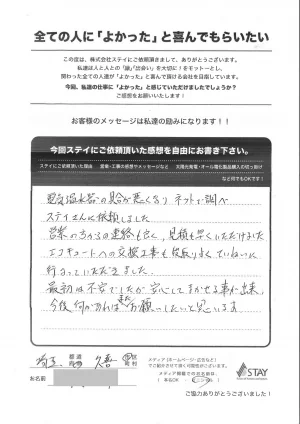 全ての人に「よかった」と喜んでもらいたい
この度は、株式会社ステイにご依頼頂きまして、ありがとうございます。
私達は人と人との「誠」「出合い」を大切に！をモットーとし、
関わった全ての人達が「よかった」と喜んで頂ける会社を目指しています。
今回、私達の仕事に「よかった」と感じていただけましたでしょうか？
ご感想をお願いいたします！
お客様のメッセージは私達の励みになります！！
今回ステイにご依頼頂いた感想を自由にお書き下さい。
ステイにご依頼頂いた理由 営業・工事の感想やメッセージなど 太陽光発電・オール電化製品購入の切っ掛け
など何でもOKです！
電気温水器の具合が悪くなり ネットで調べ
ステイさんに依頼しました
営業の方からの連絡も早く、見積も早くいただけました
エコキュートへの交換工事も段取りよくていねいに
行なっていただきました。
最初は不安でしたが安心してまかせる事が出来、
今後何かあればまたお願いしたいと思います
埼玉 都道府県 久喜 市区町村
お名前
メディア（ホームページ・広告など）
でご紹介させて頂く可能性がございます。
メディア掲載でのお名前は、
（ 本名OK ・ イニシャル ）
STAY
ご協力ありがとうございました！